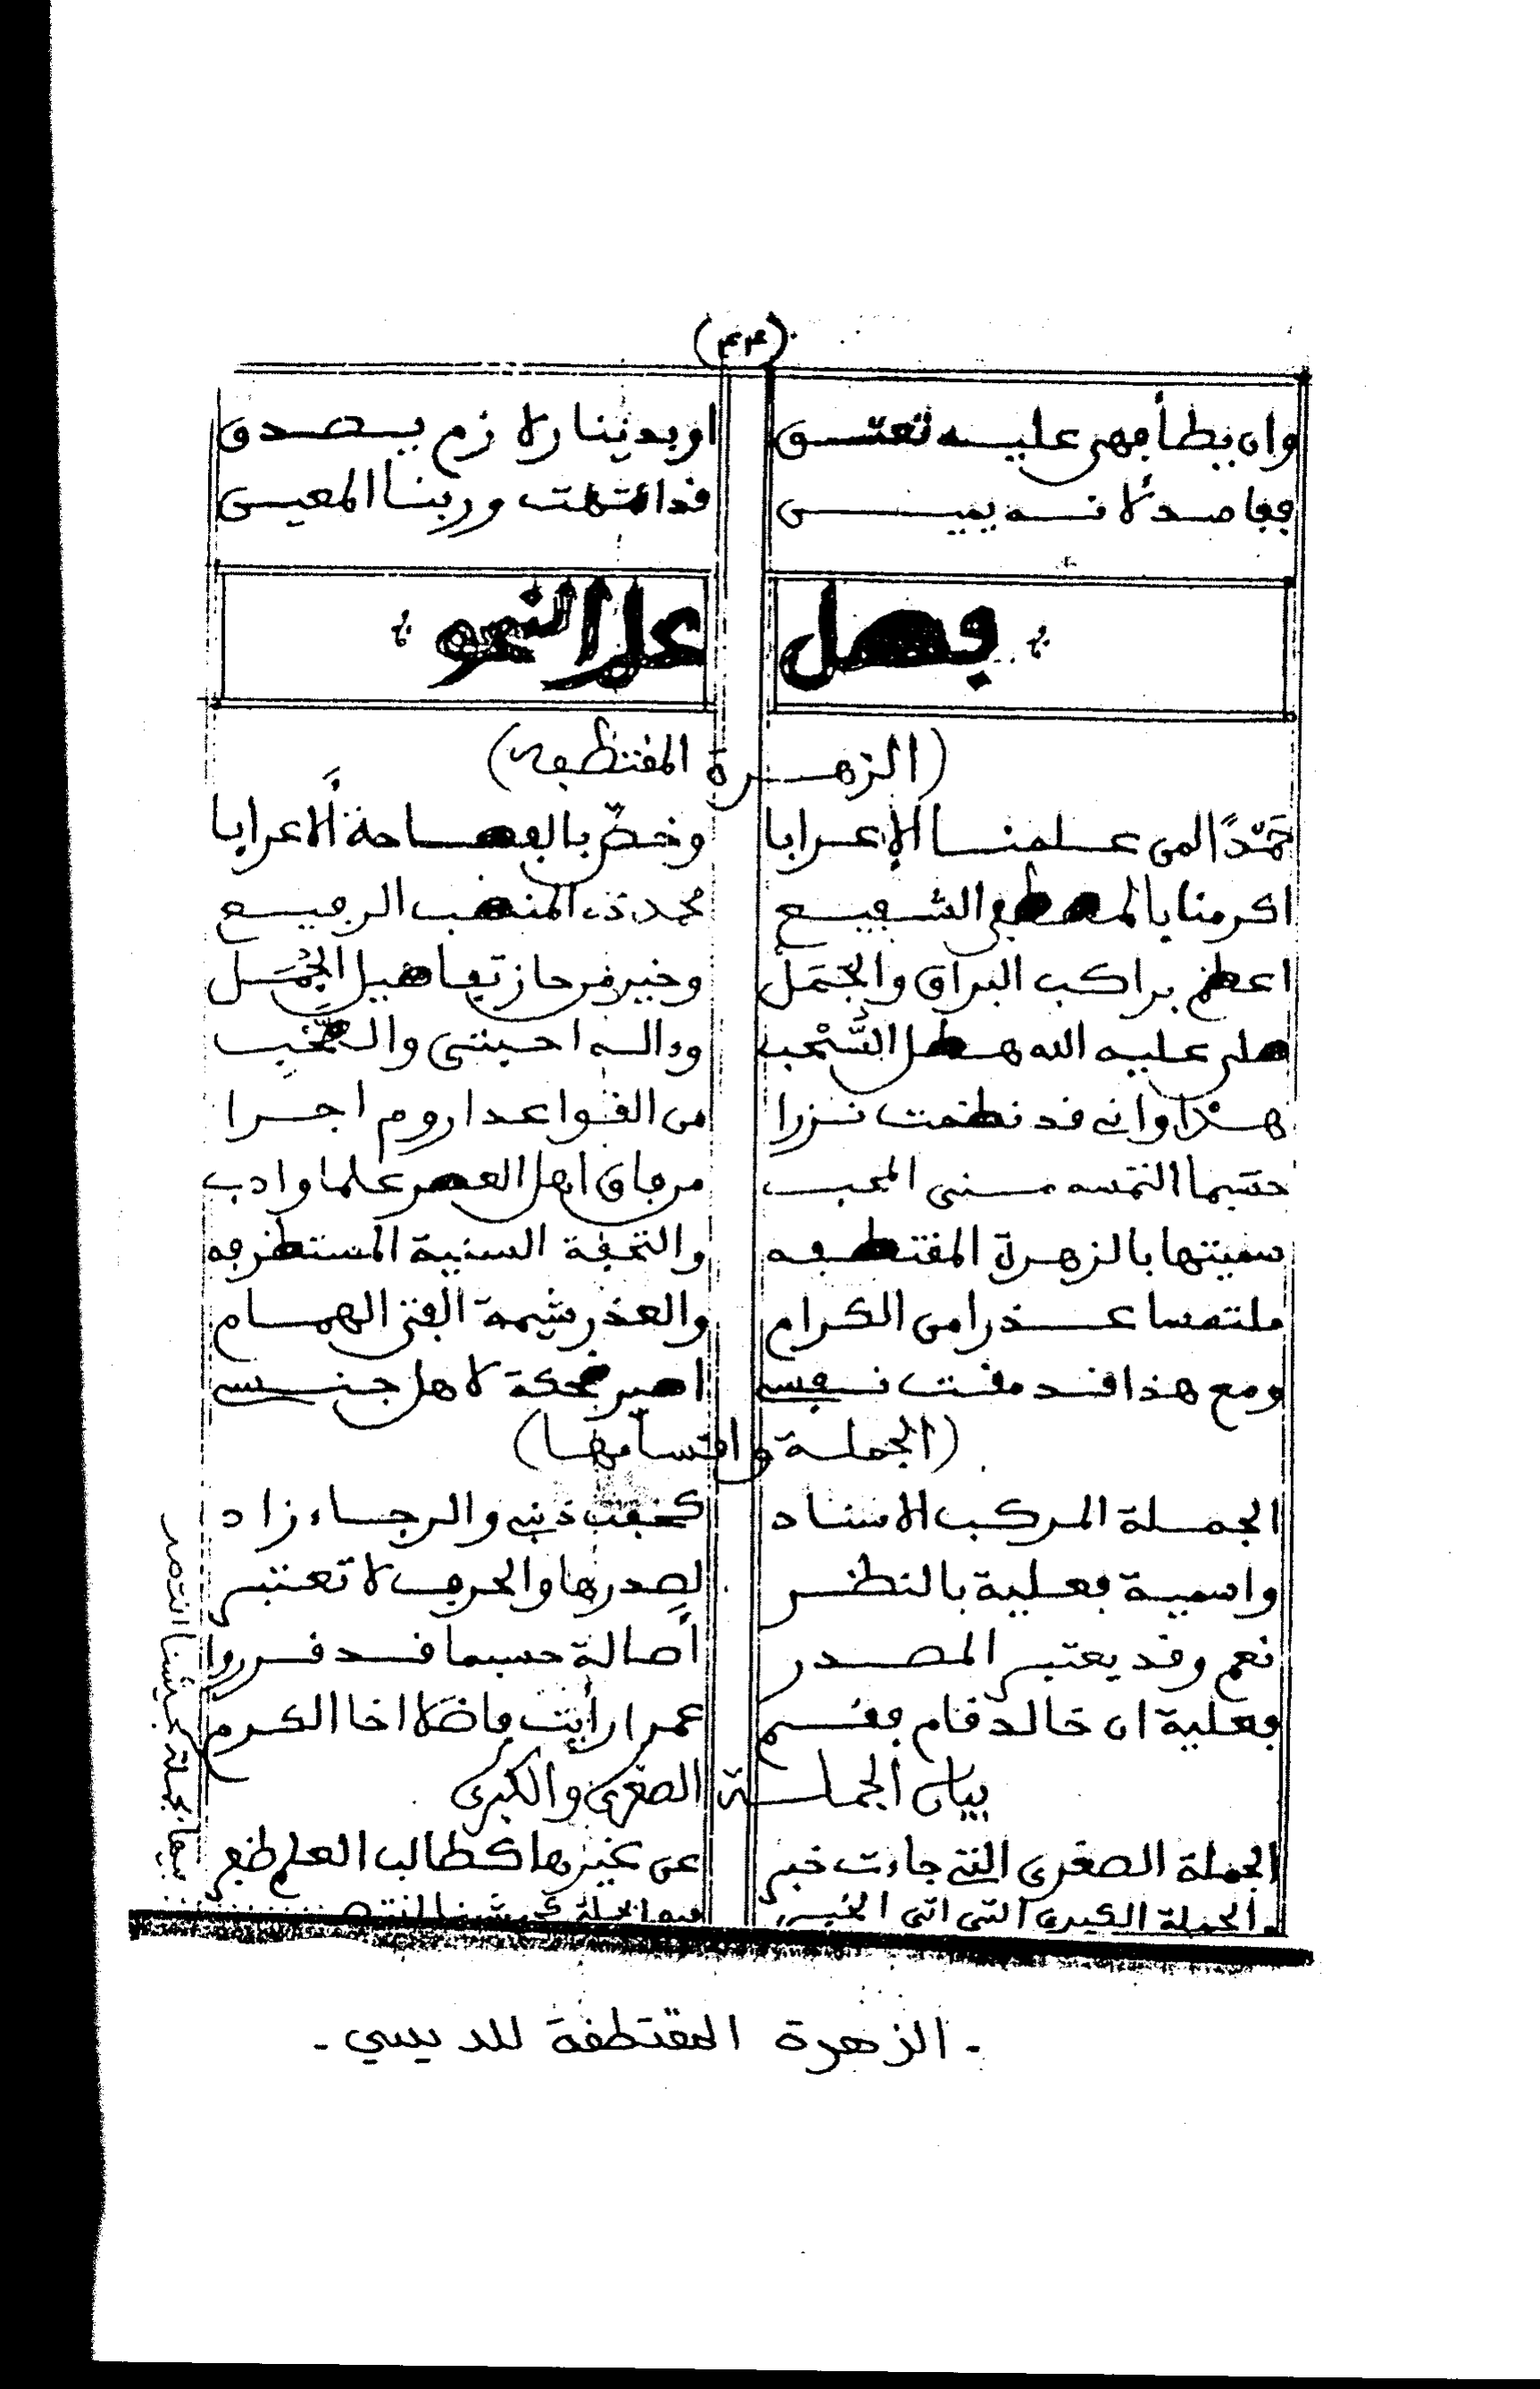 (٤٣)
وان يطأ فهى عليه تعتق اوبدينار لازم يصدق
فدانتهت وربنا المعين
فصل علم النحو
(الزهرة المقتطفه)
حَمْدًا لمن علمنا الإعرابا وخصّ بالفصاحة الأعرابا
اكرمنا بالمصطفى الشفيع محمد ذى المنصب الرفيع
اعظم براكب البراق والجَمَل وخير من حاز تفاصيل الجُمَل
صلى عليه الله هطل السُّحْب وءاله احبتى والصَّحْب
هذا وانى قد نظمت نزرا من القواعد اروم اجرا
حسبما التمسه منى المحب من فاق اهل العصر علما وادب
سميتها بالزهرة المقتطفه والتحفة السنية المستطرفه
ملتمسا عذرا من الكرام والعذر شيمة الفتى الهمام
ومع هذا قد مقت نفسى اصير ضحكة لاهل جنسى
(الجملة واقسامها)
الجملة المركب الاسناد كخفت ذنبى والرجاء زاد
واسمية فعلية بالنظر لصدرها والحرف لا تعتبر
نعم وقد يعتبر المصدر أصالة حسبما قد قرروا
فعلية ان خالد قام فقم عمرا رأيت فاضلا اخا الكرم
بيان الجملة الصغرى والكبرى
الجملة الصغرى التى جاءت خبر عن غيرها كطالب العلم ظفر
والجملة الكبرى التى اتى الخبر فيها بجملة كجيشنا انتصر
فيها بجملة كجيشنا انتصر
- الزهرة المقتطفة للديسي -